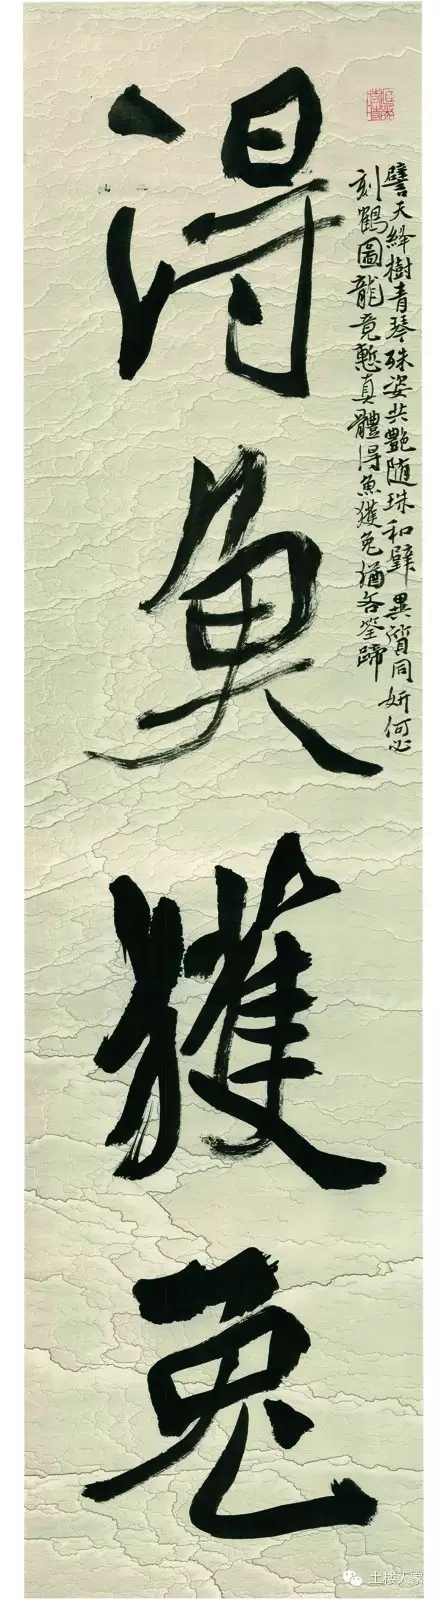 得魚獲兔
譬夫絳樹青琴殊姿共艷随珠和璧異質同妍何必
刻鶴圖龍竟慙真體得魚獲兔猶吝筌蹄
土楼大家